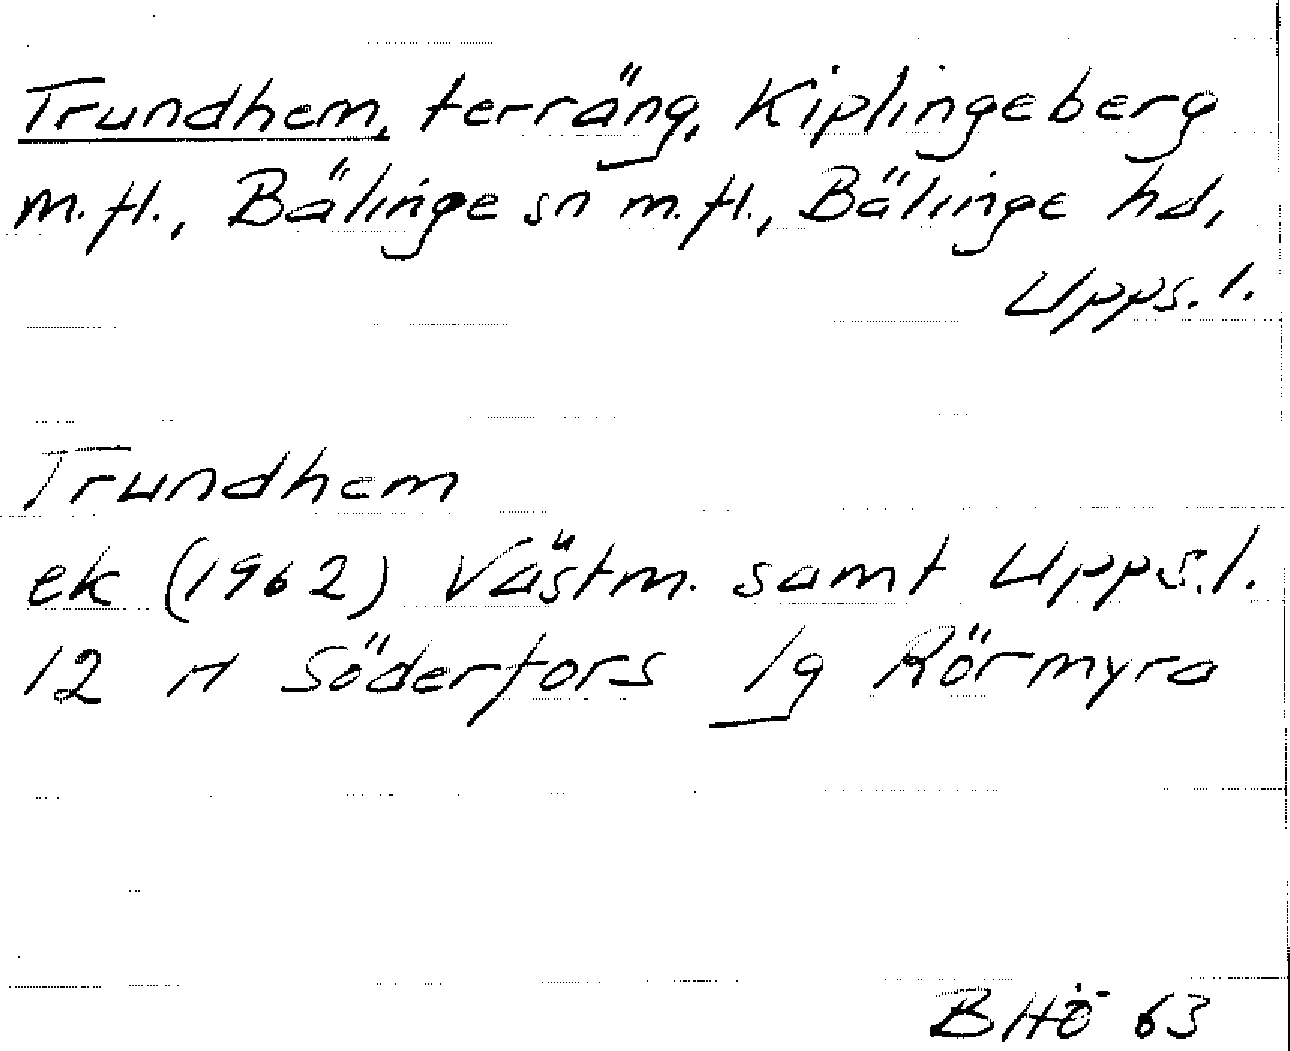 Trundhem, terräng, Kiplingeberg
m.fl., Bälinge sn m.fl., Bälinge hd,
Upps.l.
Trundhem
ek (1962) Västm. samt Upps.l.
12 H Söderfors 1g Rörmyra
BHÖ 63